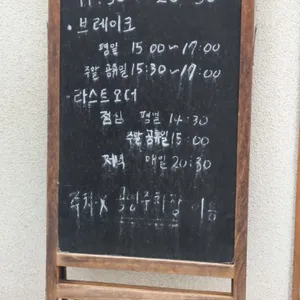 11:30 ~ 20:30
· 브레이크
평일 15:00~17:00
주말 공휴일 15:30~17:00
· 라스트오더
점심 평일 14:30
주말 공휴일 15:00
저녁 매일 20:30
주차 X